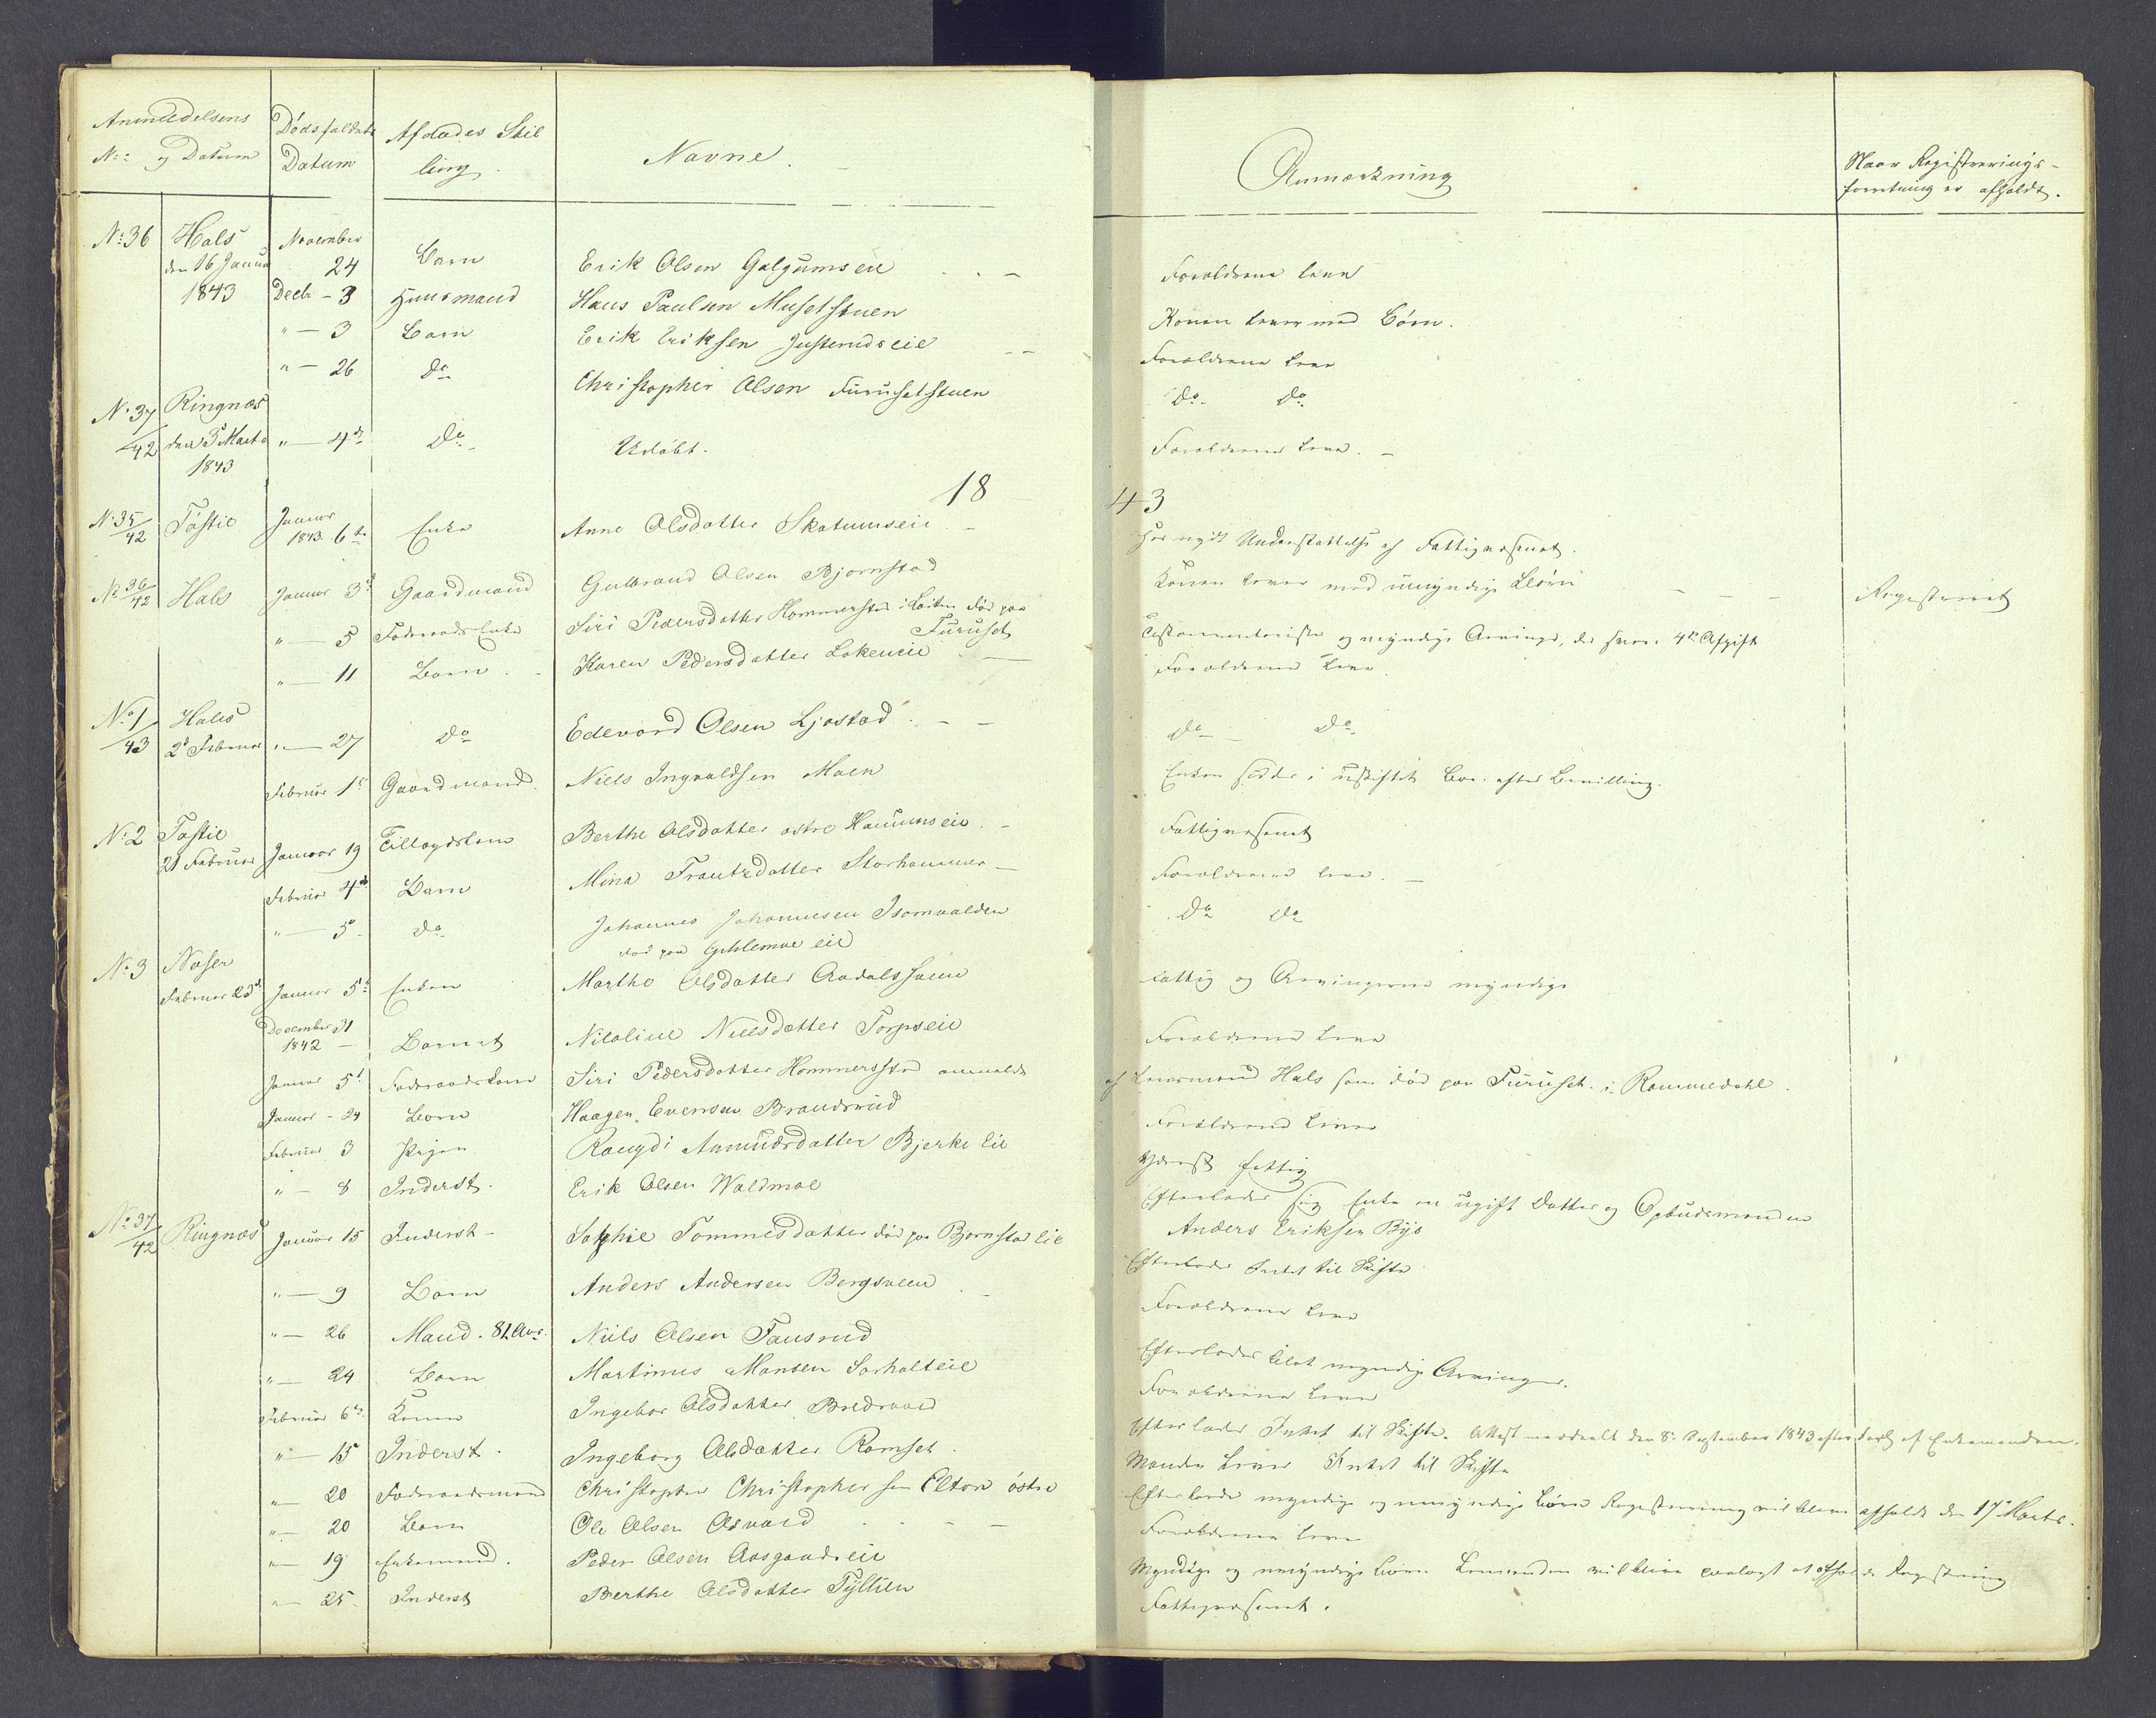 Anmeldelsens Dødsfaldets Afdødes Stil
No: og Datum Datum ling. Navne. Anmærkning Naar Registrerings-
forretning er afholdt.
No: 36 Hals November
den 16 Januar 24 Barn Erik Olsen Galgumseie Forældrene leve
1843 Decbr - 3 Huusmand Hans Paulsen Musetstuen Konen lever med Børn.
" - 3 Barn Erik Eriksen Justerudseie Forældrene leve
" - 26 Do Christopher Olsen Furusetstuen Do Do
No 37/42 Ringnæs den 3 Marts 1843 " - 4de Do Udøbt. Forældrene leve. -
18 43
No 35/42 Tøftie Januar 1843 6te Enke Anne Olsdatter Skatumseie - har nydt Understøttelse af Fattigvæsenet.
No 36/42 Hals Januar 3die Gaardmand Gulbrand Olsen Bjørnstad Konen lever med umyndige Børn - - - Registreret
" - 5 Føderaads Enke Siri Pedersdatter Hommerstad i Løiten død paa Furuset Testamentariske og myndige Arvinger, der svare 4% Afgift
" - 11 Barn Karen Pedersdatter Løkeneie Forældrene leve.
No 1/43 Hals 2d Februar " - 27 Do Edevard Olsen Ljøstad. - - Do Do
Februar 1ste Gaardmand. Niels Ingvaldsen Moen Enken sidder i uskiftet Boe efter Bevilling.
No: 2 Tøftie 21 Februar Januar 19 Berthe Olsdatter østre - Fattigvæsenet
Februar 4de Barn Mina Frantzdatter Storhammer - Forældrene leve. -
" - 5 Do Johannes Johannesen Isomvalden Do Do
død paa eie
No: 3 Næser Februar 23d Januar 5te Enken Marthe Olsdatter fattig og Arvingerne myndige
December 31 1842 - Barnet Nicoline Nielsdatter Torpseie Forældrene leve
Januar 5te Føderaadskone Siri Pedersdatter Hommerstad anmeldt af Lensmand Hals som død paa Furuset i Rommedahl.
Januar - 24 Barn Haagen Evensen Brandsrud Forældrene lever
Februar 3 Pigen Rangdi Amundsdatter Bjerke Eie yderst fattig
" - 8 Inderst. Erik Olsen Waldmoe Efterlader sig Enke en ugift Datter og Opbudsmanden
Anders Eriksen Bye
No 37/42 Ringnæs Januar 15 Inderst - Sophie Tommesdatter død paa Bjørnstad Eie Efterlader Intet til Skifte
" - 9 Barn Anders Andersen Bergsveen Forældrene leve
" - 26 Mand. 81 Aar. Niels Olsen Fausrud Efterlader blot myndige Arvinger.
" - 24 Barn Martinus Monsen Sørholteie Forældrene leve
Februar 6te Konen Ingebor Olsdatter Bredvold Efterlader Intet til Skifte. Attest meddeelt den 8de September 1843 efter af Enkemanden.
" - 15 Inderst. Ingeborg Olsdatter Romset. Manden lever Intet til Skifte
" - 20 Føderaadsmand Christopher Christophersen Elton østre Efterlader myndige og umyndige Børn Registrering vil blive afholdt den 17de Marts.
" - 20 Barn Ole Olsen Asvold - - Forældrene leve
" - 19 Enkemand. Peder Olsen Aasgaardseie Myndige og umyndige Børn Lensmanden vil blive paalagt at afholde Registrering
" - 25. Inderst Berthe Olsdatter Tyllien Fattigvæsenet.